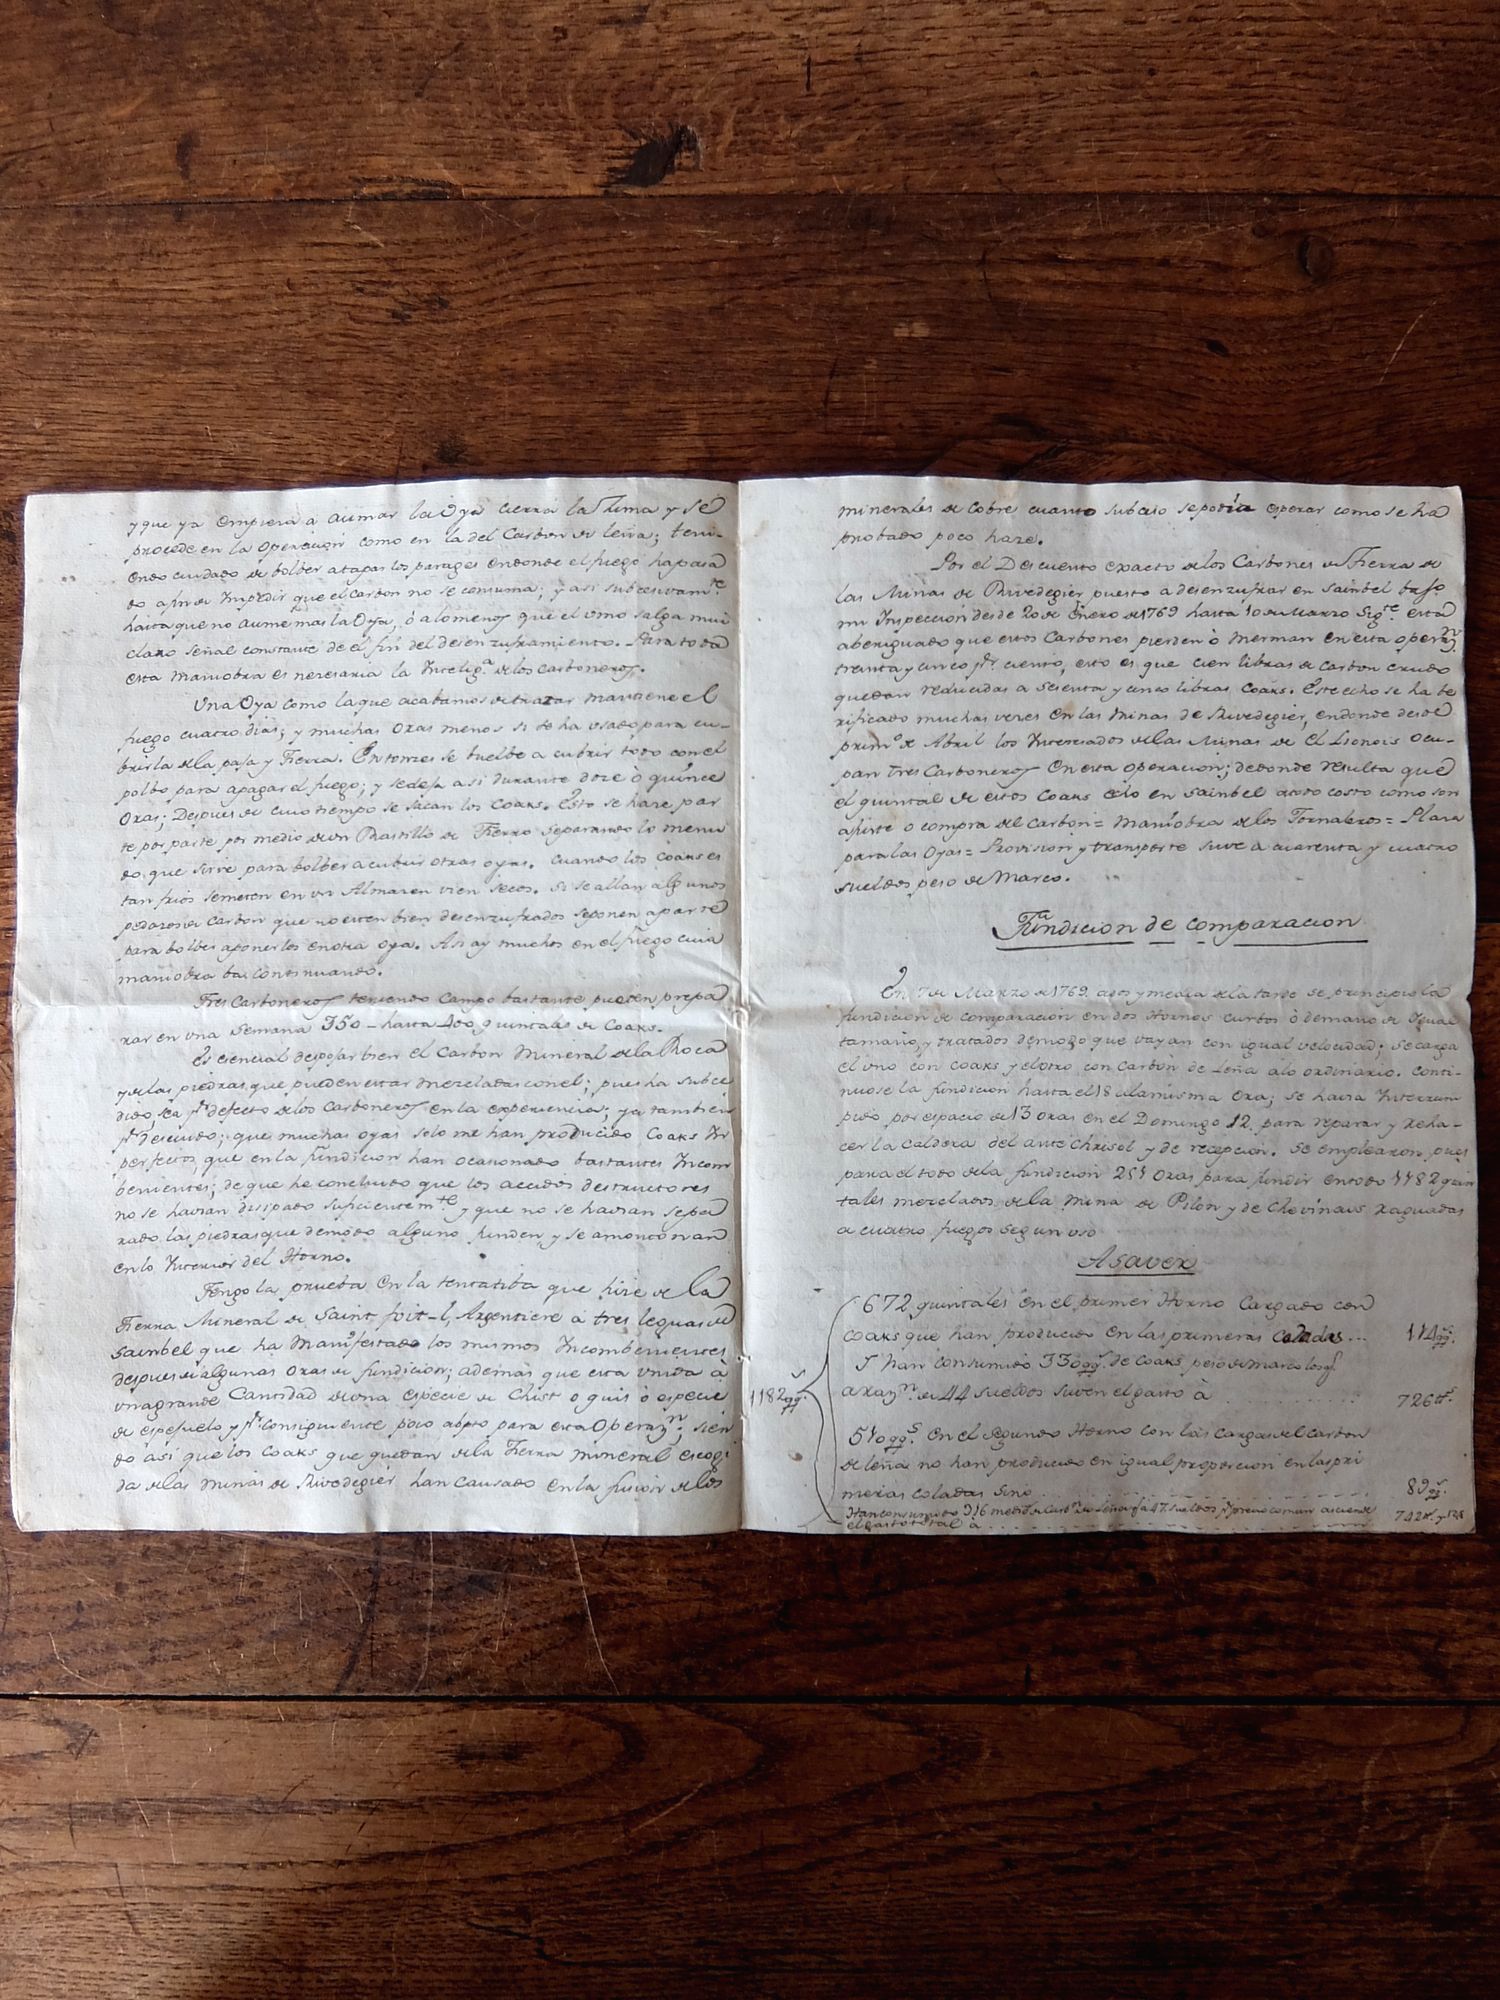 y que ya empiera a aumar la Oya cierra la Zima y se
procede en la operacion como en la del Carbon de leña; teni-
endo cuidado de bolber a tapar los parages endonde el fuego ha pasa
do a fin de Impedir que el carbon no se consuma; y asi subcesivamte
hasta que no aume mas la Oya, ó alomenos que el umo salga mui
claro señal constante de el fin del desenzuframiento. Para toda
esta maniobra es neresaria la Inteliga de los carboneros.
Una Oya como la que acabamos de trazar mantiene el
fuego cuatro dias; y muchas oras menos si se ha usado para cu-
brirla de la paja y Tierra. Entonzes se buelbe a cubrir todo con el
polbo para apagar el fuego; y se deja asi durante doze ò quince
oras; Despues de cuio tiempo se sacan los Coaks. Esto se haze par
te por parte por medio de un Rastillo de Fierro separando lo menu
do, que sirve para bolber a cubrir otras oyas. Cuando los coaks es
tan frios se meten en un Almazen vien secos. Si se allan algunos
pedazos de carbon que no esten bien desenzufrados se ponen aparte
para bolber a ponerlos en otra oya. Asi ay muchos en el fuego cuia
maniobra ba continuando.
Tres Carboneros teniendo Campo bastante pueden prepa
rar en una semana 350 - hasta 400 quintales de Coaks.
Es esencial despojar bien el Carbon Mineral de la Roca
y de las piedras que pueden estar mezcladas con el; pues ha subce
dido, sea pr defecto de los Carboneros en la experiencia; ya tambien
pr descuido; que muchas oyas solo me han producido Coaks Im
perfectos, que en la fundicion han ocasionado bastantes Incom
benientes; de que he concluido que los accidos destructores
no se havian disipado suficientemte y que no se havian sepa
rado las piedras que de modo alguno funden y se amontonan
en lo Interior del Horno.
Tengo la prueba en la tentatiba que hize de la
Tierra Mineral de Saint foit-l,Argentiere à tres leguas de
Sainbel que ha Manifestado los mismos Incombenientes
despues de algunas oras de fundicion; ademas que esta unida à
una grande Cantidad de una especie de Chist o guis ò especie
de espejuelo y pr consiguiente poco abpto para esta Operazn; sien
do asi que los Coaks que quedan de la Tierra mineral escogi
da de las Minas de Rivedegier han causado en la fusion de los
minerales de Cobre cuanto subcio se podia esperar como se ha
probado poco haze.
Por el Descuento exacto de los Carbones de Tierra de
las Minas de Rivedegier puesto a desenzufrar en Sainbel bajo
mi Inspeccion desde 20 de Enero de 1769 hasta 10 de Marzo Sigte está
aberiguado que estos Carbones pierden ò merman en esta operazn
treinta y cinco pr ciento, esto es que cien libras de carbon crudo
quedan reducidas a sesenta y cinco libras coaks. Este echo se ha be
rificado muchas veces en las Minas de Rivedegier, endonde desde
primo de Abril los Interesados de las Minas de el Lionois ocu-
pan tres Carboneros en esta operacion; dedonde resulta que
el quintal de estos Coaks echo en Sainbel a todo costo como son
ajuste o compra del carbon = maniobra de los Jornaleros = Plaza
para las Oyas = Provision y transporte suve a cuarenta y cuatro
sueldos peso de Marco.
Fundicion de comparacion
En 7 de Marzo de 1769. a dos y media de la tarde se principio la
fundicion de comparacion en dos Hornos curbos ò de mano de Igual
tamaño, y tratados de modo que vayan con igual velocidad; se carga
el uno con coaks y el otro con carbon de leña a lo ordinario. Conti-
nuose la fundicion hasta el 18 a la misma ora; se havia Interrum
pido por espacio de 13 oras en el Domingo 12. para reparar y reha-
cer la caldera del ante Chrisol y de recepcion. Se emplearon, pues
para el todo de la fundicion 251 oras para fundir en todo 1182 quin
tales mezclados de la mina de Pilon y de Chevinais raguadas
a cuatro fuegos segun uso
Asaver
672 quintales en el primer Horno Cargado con
coaks que han producido en las primeras coladas ... 114 qqs.
Y han consumido 330 qqs. de coaks peso de marco los qs
a razn. de 44 sueldos suven el gasto à ... 726 tts.
1182 qqs.
510 qqs. En el segundo Horno con las Cargas del carbon
de leña no han producido en igual proporcion en las pri
meras coladas sino ... 89 qqs.
Han consumido 316 medids de Carbn de Leña qe a 47 sueldos pr precio comun asciende
el gasto total à ... 742 tt. y 12 s